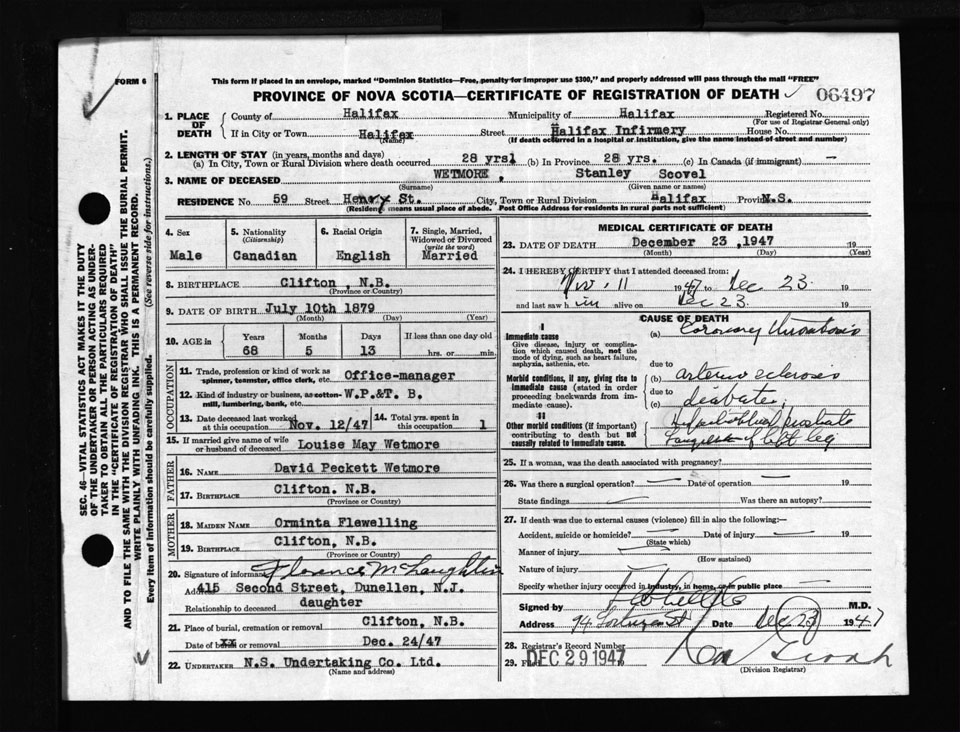 FORM 6
This form if placed in an envelope, marked "Dominion Statistics—Free, penalty for improper use $300," and properly addressed will pass through the mail "FREE"
PROVINCE OF NOVA SCOTIA—CERTIFICATE OF REGISTRATION OF DEATH
06497
SEC. 46—VITAL STATISTICS ACT MAKES IT THE DUTY
OF THE UNDERTAKER OR PERSON ACTING AS UNDER-
TAKER TO OBTAIN ALL THE PARTICULARS REQUIRED
IN THE "CERTIFICATE OF REGISTRATION OF DEATH"
AND TO FILE THE SAME WITH THE DIVISION REGISTRAR WHO SHALL ISSUE THE BURIAL PERMIT.
WRITE PLAINLY WITH UNFADING INK. THIS IS A PERMANENT RECORD.
Every item of information should be carefully supplied. (See reverse side for instructions.)
1. PLACE OF DEATH
County of Halifax Municipality of Halifax Registered No.
(For use of Registrar General only)
If in City or Town Halifax Street Halifax Infirmery House No.
(Name) (If death occurred in a hospital or institution, give the name instead of street and number)
2. LENGTH OF STAY (in years, months and days)
(a) In City, Town or Rural Division where death occurred 28 yrsl (b) In Province 28 yrs. (c) In Canada (if immigrant) —
3. NAME OF DECEASED WETMORE, Stanley Scovel
(Surname) (Given name or names)
RESIDENCE No. 59 Street Henry St. City, Town or Rural Division Halifax Provin N.S.
(Residence means usual place of abode. Post Office Address for residents in rural parts not sufficient)
4. Sex
Male
5. Nationality
(Citizenship)
Canadian
6. Racial Origin
English
7. Single, Married, Widowed or Divorced
(write the word)
Married
8. BIRTHPLACE Clifton, N.B.
(Province or Country)
9. DATE OF BIRTH July 10th 1879
(Month) (Day) (Year)
10. AGE in Years Months Days If less than one day old
68 5 13 hrs. or min.
OCCUPATION
11. Trade, profession or kind of work as
spinner, teamster, office clerk, etc. Office-manager
12. Kind of industry or business, as cotton-
mill, lumbering, bank, etc. W.P.&T. B.
13. Date deceased last worked
at this occupation Nov. 12/47
14. Total yrs. spent in
this occupation 1
15. If married give name of wife
or husband of deceased Louise May Wetmore
FATHER
16. NAME David Peckett Wetmore
17. BIRTHPLACE Clifton. N.B.
(Province or Country)
MOTHER
18. MAIDEN NAME Orminta Flewelling
19. BIRTHPLACE Clifton, N.B.
(Province or Country)
20. Signature of informant Florence McLaughlin
Address 415 Second Street, Dunellen, N.J.
Relationship to deceased daughter
21. Place of burial, cremation or removal Clifton, N.B.
Date of burial or removal Dec. 24/47
22. UNDERTAKER N.S. Undertaking Co. Ltd.
(Name and address)
MEDICAL CERTIFICATE OF DEATH
23. DATE OF DEATH December 23, 1947 19
(Month) (Day) (Year)
24. I HEREBY CERTIFY that I attended deceased from:
Nov. 11 1947 to Dec 23. 19
and last saw him alive on Dec 23. 19
CAUSE OF DEATH
I
Immediate cause
Give disease, injury or complica-
tion which caused death, not the
mode of dying, such as heart failure,
asphyxia, asthenia, etc.
(a) Coronary thrombosis
due to
Morbid conditions, if any, giving rise to
immediate cause (stated in order
proceeding backwards from im-
mediate cause).
(b) arterio sclerosis
due to
(c) diabetes
II
Other morbid conditions (if important)
contributing to death but not
causally related to immediate cause.
prostate
of left leg
25. If a woman, was the death associated with pregnancy?
26. Was there a surgical operation? — Date of operation — 19
State findings Was there an autopsy?
27. If death was due to external causes (violence) fill in also the following:
Accident, suicide or homicide? Date of injury 19
(State which)
Manner of injury
(How sustained)
Nature of injury
Specify whether injury occurred in industry, in home, or in public place
Signed by M.D.
Address 94 St Date Dec 23 1947
28. Registrar's Record Number
29. Filed DEC 29 1947
(Division Registrar)